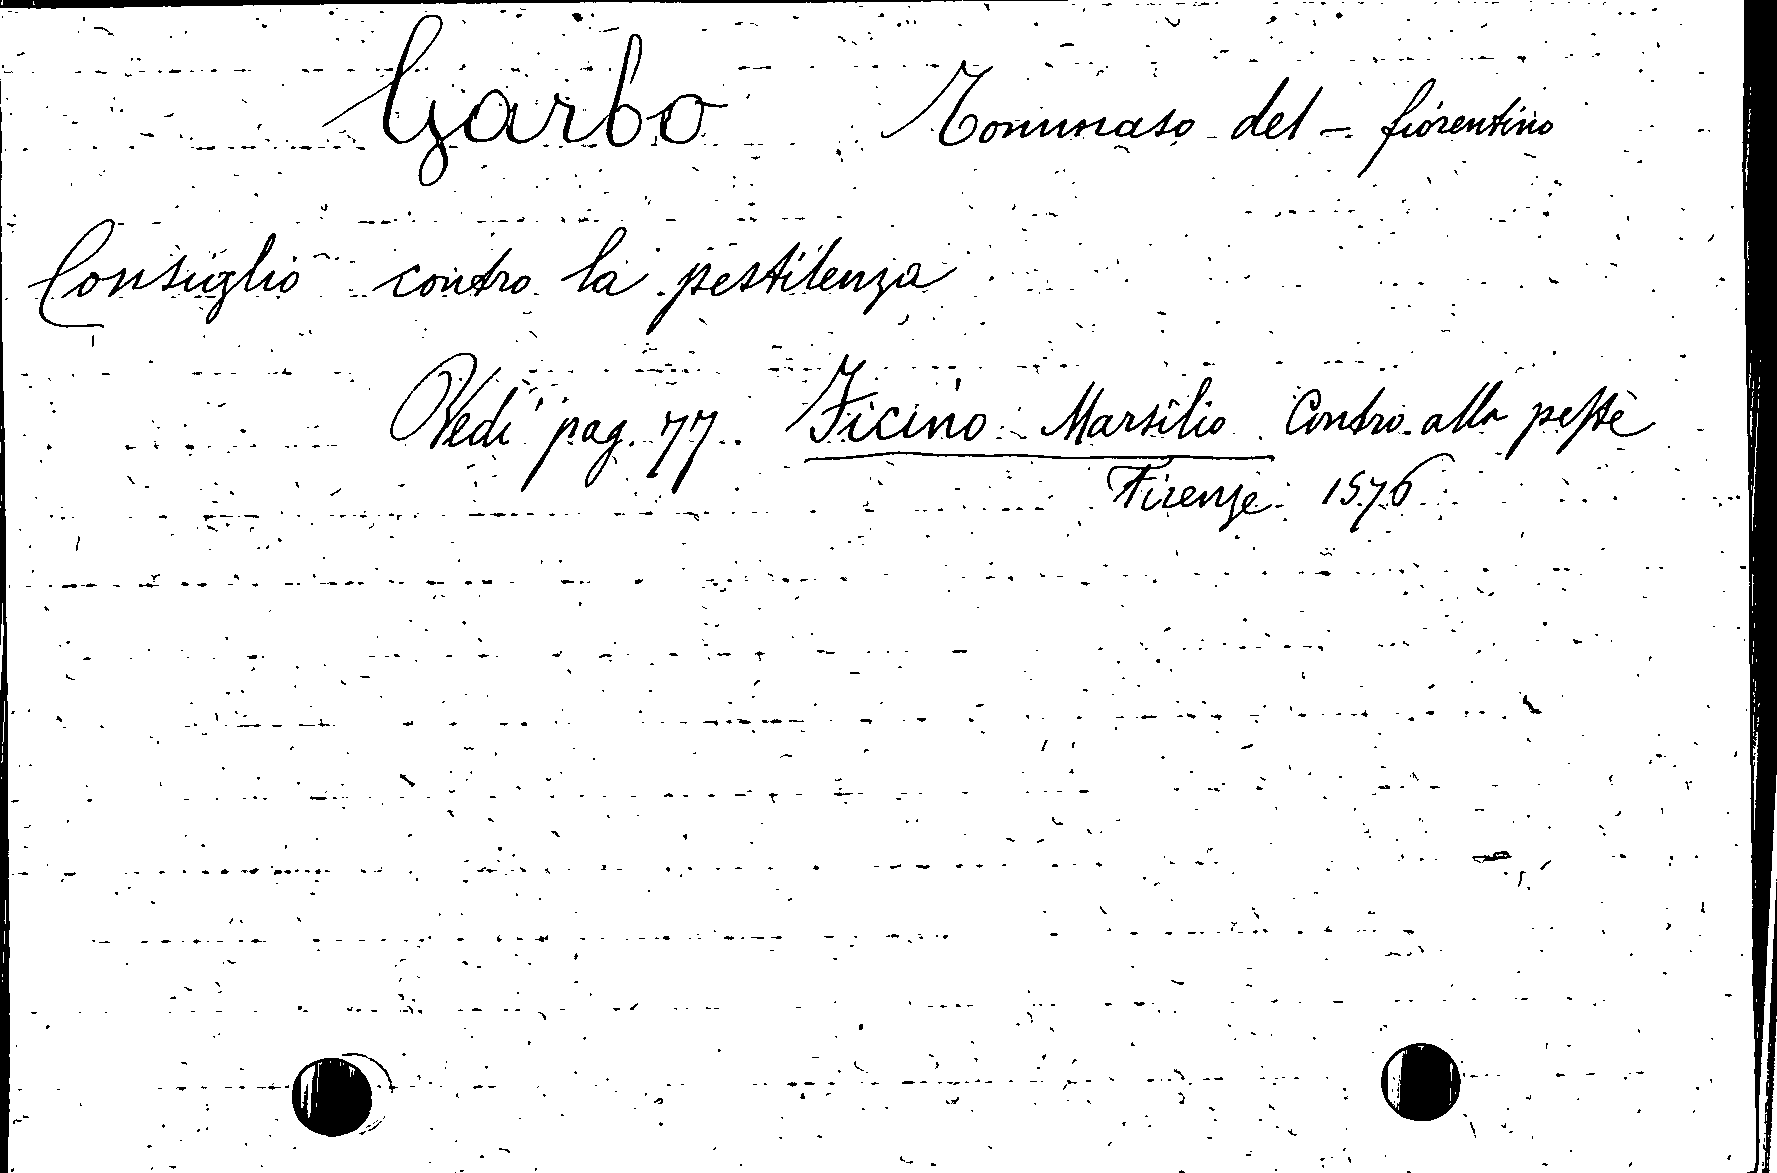 Garbo Tommaso del - fiorentino
Consiglio contro la pestilenza
Vedi pag. 77. Ficino Marsilio Contro alla peste
Firenze 1576